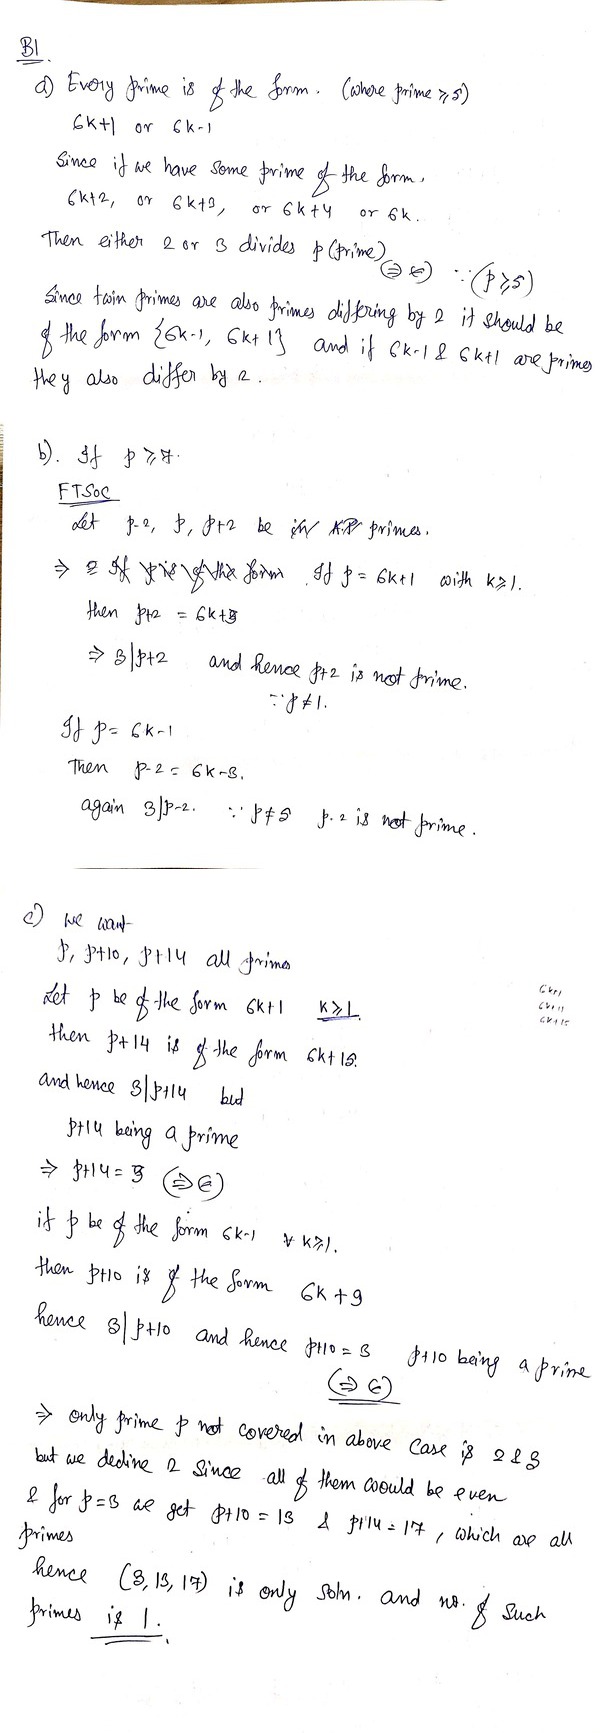 B1.
a) Every prime is of the form. (where prime ≥ 5)
6k+1 or 6k-1
Since if we have some prime of the form.
6k+2, or 6k+3, or 6k+4 or 6k.
Then either 2 or 3 divides p (prime)
(⇒⇐) ∵ (p≥5)
Since twin primes are also primes differing by 2 it should be
of the form {6k-1, 6k+1} and if 6k-1 & 6k+1 are primes
they also differ by 2.
b). If p ≥ 7.
FTSOC
Let p-2, p, p+2 be primes.
⇒ If p = 6k+1 with k≥1.
then p+2 = 6k+3
⇒ 3|p+2 and hence p+2 is not prime.
∵ p≠1.
If p = 6k-1
Then p-2 = 6k-3.
again 3|p-2. ∵ p≠5 p-2 is not prime.
c) we want
p, p+10, p+14 all primes
Let p be of the form 6k+1 k≥1.
6k+1
6k+11
6k+15
then p+14 is of the form 6k+15.
and hence 3|p+14 but
p+14 being a prime
⇒ p+14 = 3 (⇒⇐)
if p be of the form 6k-1 ∀ k≥1.
then p+10 is of the form 6k+9
hence 3|p+10 and hence p+10 = 3 p+10 being a prime
(⇒⇐)
⇒ only prime p not covered in above case is 2 & 3
but we decline 2 since all of them would be even
& for p=3 we get p+10 = 13 & p+14 = 17, which are all
primes
hence (3, 13, 17) is only soln. and no. of such
primes is 1.